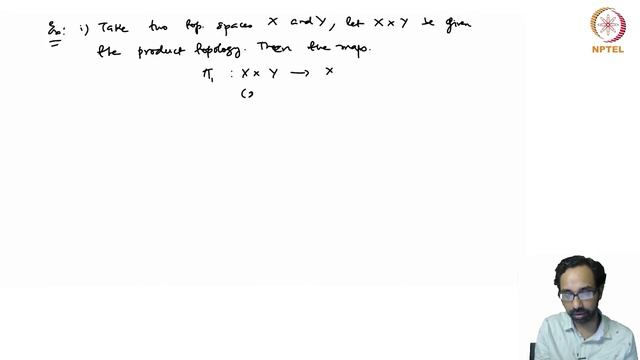 Ex: i) Take two top. spaces X and Y, let X × Y be given
the product topology. Then the maps.
π₁ : X × Y → X
(x
NPTEL